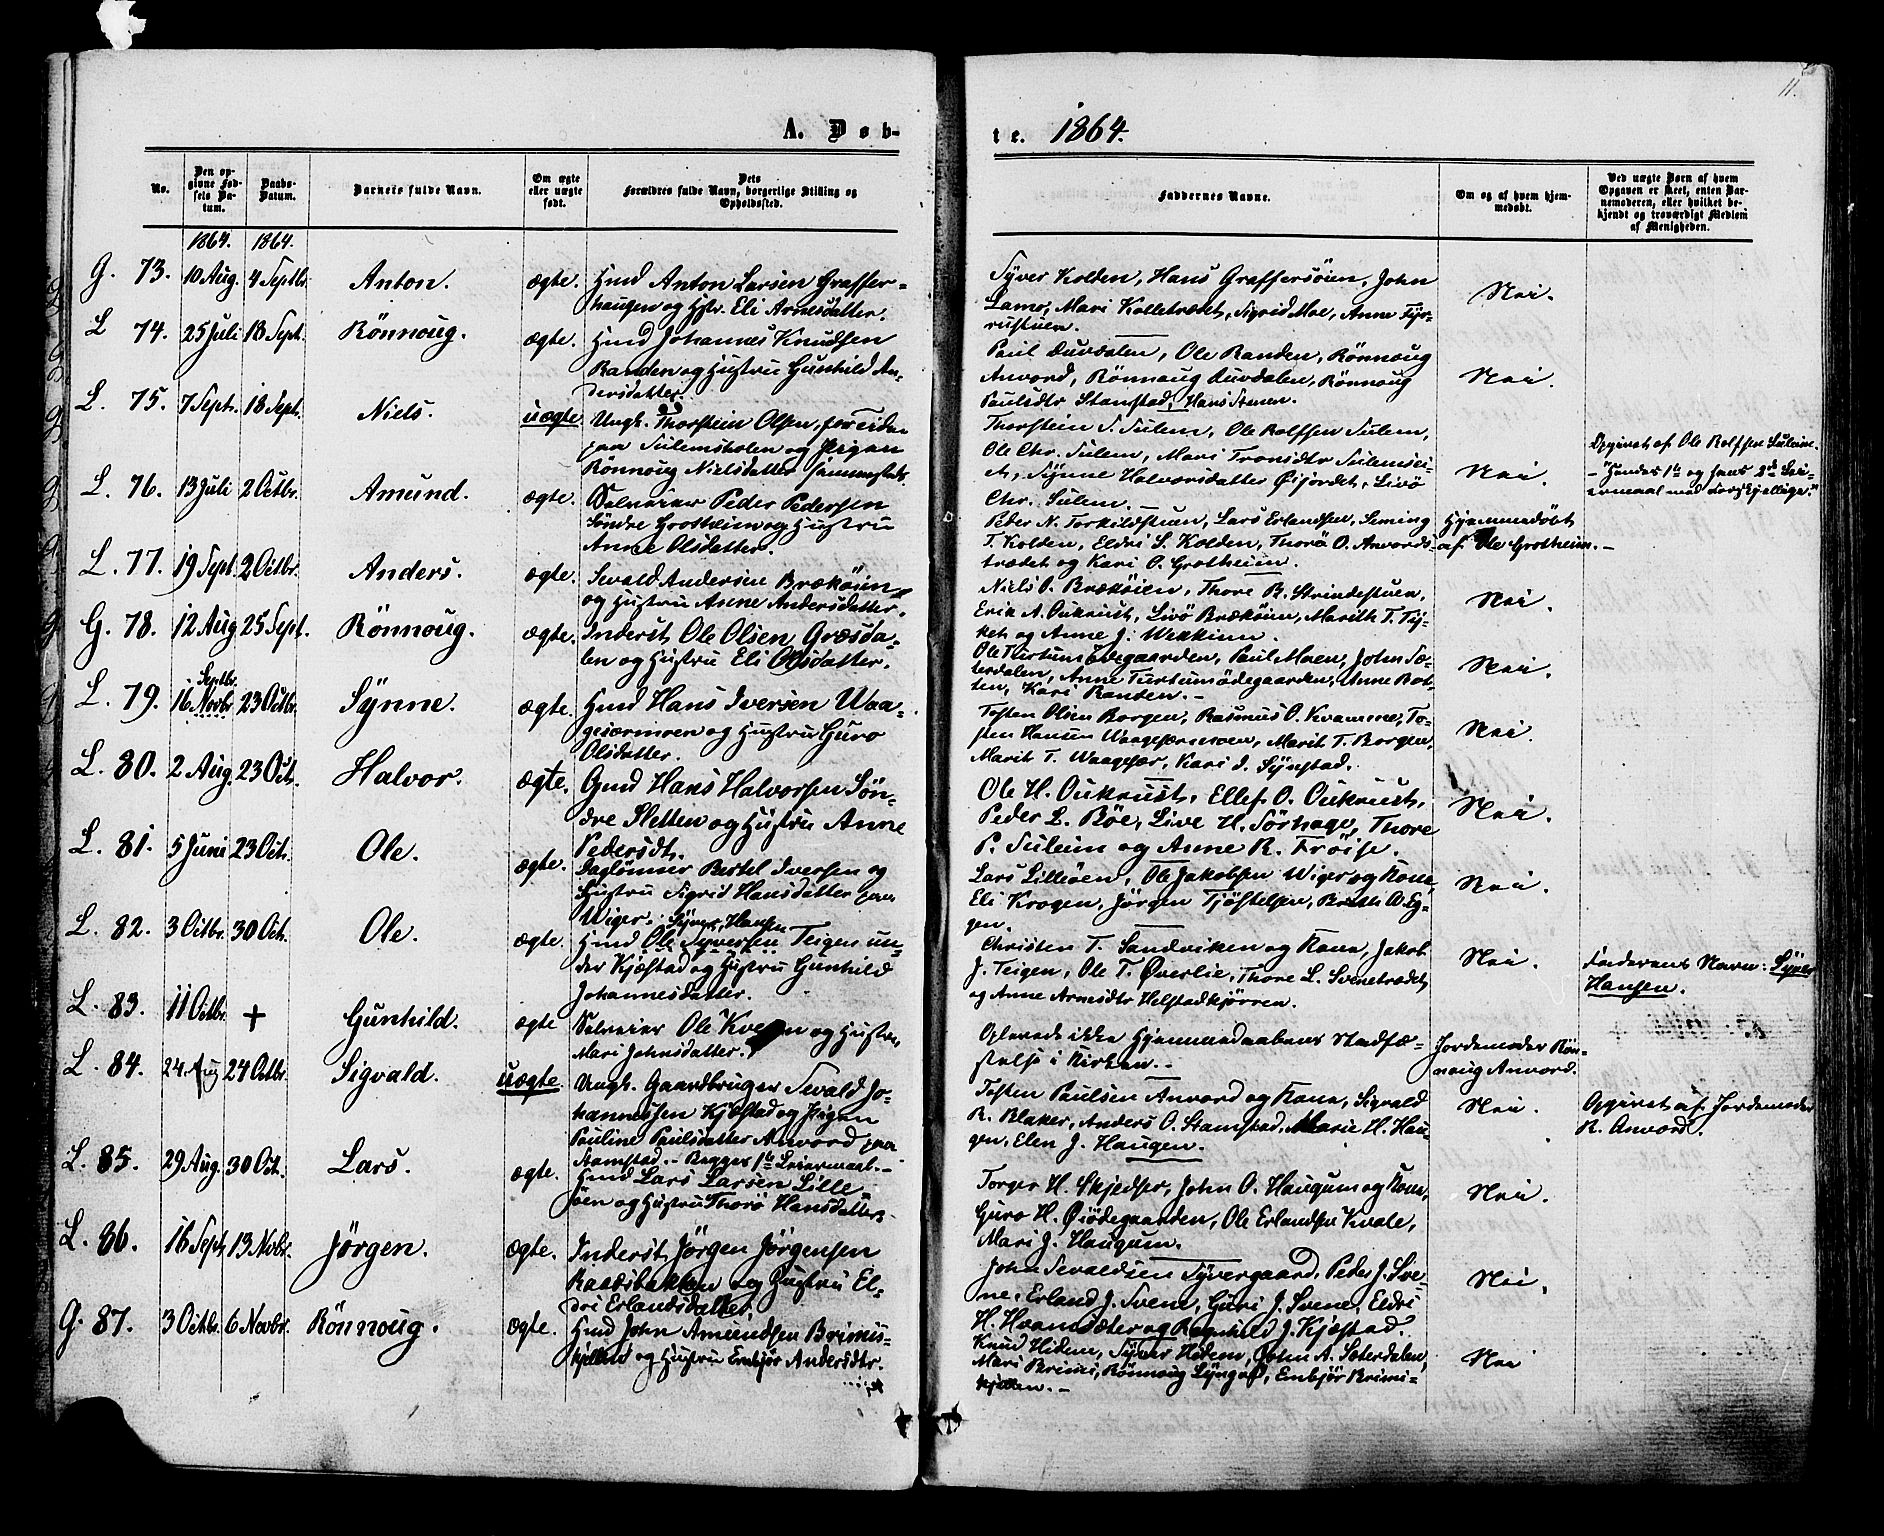 11.
A. Døb-
te. 1864.
No.
Den op-
givne Fød-
sels Da-
tum.
Daabs-
Datum.
Barnets fulde Navn.
Om ægte
eller uægte
født.
Dets
Forældres fulde Navn, borgerlige Stilling og
Opholdssted.
Faddernes Navne.
Om og af hvem hjem-
medøbt.
Ved uægte Børn af hvem
Opgaven er skeet, enten Bar-
nemoderen, eller hvilket be-
kjendt og troværdigt Medlem
af Menigheden.
1864. 1864.
G. 73. 10 Aug. 4 Septbr. Anton. ægte.
Gmd Anton Larsen Graffer-
haugen og Hstr. Eli Arnesdatter.
Syver Kolden, Hans Graffersøien, John
Lamo, Mari Kolletrødet, Sigrid Moe, Anne Tyr-
rustuen.
Nei.
L 74. 25 Juli 18 Sept. Rönnoug. ægte.
Hmd Johannes Knudsen
Randen og Hustru Gunhild An-
dersdatter.
Paul Duvdalen, Ole Randen, Rönnoug
Anvord, Rönnoug Duvdalen, Rönnoug
Paulsdtr Stamstad, Hans Stenen.
Nei.
L. 75. 7 Sept. 18 Sept. Niels. uægte
Ungk. Thorstein Olsen, for Tiden
paa Sulemsholen og Pigen
Rönnoug Nielsdatter sammesteds.
Thorstein S. Sulem, Ole Rolfsen Sulem,
Ole Chr. Sulem, Mari Tronsdtr Sulemsei-
et, Synne Halvorsdatter Øijordet, Livö
Chr. Sulem.
Nei.
Opgivet af Ole Rolfsen Suleim.
- "Hendes 1te og hans 2det Lei-
ermaal med forskjellige."
L. 76. 13 Juli 2 Octbr. Amund. ægte.
Selveier Peder Pedersen
Söndre Grotheim og Hustru
Anne Olsdatter.
Peder N. Torkildstuen, Lars Erlandsen, Seming
T. Kolden, Eldri S. Kolden, Thorö O. Anvords-
trædet og Kari O. Grotheim.
Hjemmedöbt
af Ole Grotheim. -
L. 77. 19 Sept. 2 Octbr. Anders. ægte.
Sevald Andersen Bræköien
og Hustru Anne Andersdatter.
Niels O. Brækøien, Thore B. Strindestuen,
Erik A. Oukrust, Livö Brækøien, Marith T. Ty-
ket og Anne J. Wekkinn.
Nei.
G. 78. 12 Aug 25 Sept. Rönnoug. ægte.
Inderst Ole Olsen Græsda-
len og Hustru Eli Olsdatter.
Ole Turtum Ödegaarden, Paul Moen, John Sæ-
terdalen, Anne Turtumödegaarden, Anne Bot-
ten, Kari Randen. -
Nei.
L. 79. 16 Novbr. Septbr. 23 Octbr. Synne. ægte.
Hmd Hans Iversen Waa-
gesærmoen og Hustru Guro
Olsdatter.
Tosten Olsen Borgen, Rasmus O. Kvamme, To-
sten Hansen Waagesærmoen, Marit T. Borgen,
Marit T. Waagesær, Kari I. Synstad.
Nei.
L. 80. 2 Aug. 23 Oct. Halvor. ægte.
Gmd Hans Halvorsen Sön-
dre Sletten og Hustru Anne
Pedersdt.
Ole H. Oukrust, Ellef O. Oukrust,
Peder L. Böe, Live H. Sörhage, Thore
P. Suleim og Anne R. Fröise.
Nei.
L. 81. 5 Juni 23 Oct. Ole. ægte.
Daglönner Bertel Iversen og
Hustru Sigrid Hansdatter paa
Wiger.
Lars Lilleöen, Ole Jakobsen Wiger og Kone,
Eli Krogen, Jörgen Tjöstelsen, Brith O. Eg-
gen.
Nei.
L. 82. 3 Octbr. 30 Oct. Ole. ægte.
Syver Hansen
Hmd Ole Syversen Teigen un-
der Kjæstad og Hustru Gunhild
Johannesdatter.
Christen T. Sandviken og Kone, Jakob
J. Teigen, Ole T. Øverlie, Thore L. Svenetrædet
og Anne Arnesdtr Helstadkjörren.
Nei.
Faderens Navn: Syver
Hansen.
L. 83. 11 Octbr. + Gunhild. ægte
Selveier Ole Kvern og Hustru
Mari Johnsdatter.
Oplevede ikke Hjemmedaabens Stadfæ-
stelse i Kirken. -
Jordemoder Rön-
noug Anvord.
L. 84. 24 Aug 24 Octbr. Sigvald. uægte.
Ungk. Gaardbruger Sevald Jo-
hannessen Kjæstad og Pigen
Pauline Paulsdatter Anvord paa
Stamstad. - Begges 1te Leiermaal. -
Tosten Paulsen Anvord og Kone, Sigvald
R. Blaker, Anders O. Stamstad, Marie H. Hau-
gen, Elen J. Haugen.
Nei.
Opgivet af Jordemoder
R. Anvord.
L. 85. 29 Aug. 30 Oct. Lars. ægte.
Hmd Lars Larsen Lille
öen og Hustru Thorö Hansdatter. -
Torger H. Skjedser, John O. Haugum og Kone,
Guro H. Øiödegaarden, Ole Erlandsen Kvale,
Mari J. Haugum.
Nei.
L. 86. 16 Sept. 13 Novbr. Jörgen. ægte.
Inderst Jörgen Jörgensen
Raasbakken og Hustru El-
dri Erlandsdatter.
John Sevaldsen Syvergaard, Peder J. Sve-
ne, Erland J. Svene, Guri J. Svene, Eldri
H. Hvamsæter og Ragnhild J. Kjæstad.
Nei.
G. 87. 3 Octbr. 6 Novbr. Rönnoug. ægte.
Hmd John Amundsen Brimis-
kjellen og Hustru Embjör Andersdtr.
Knud Hidem, Syver Hidem, John A. Sæterdalen,
Mari Brimi, Rönnoug Lyngved, Embjör Brimi-
kjellen. -
Nei